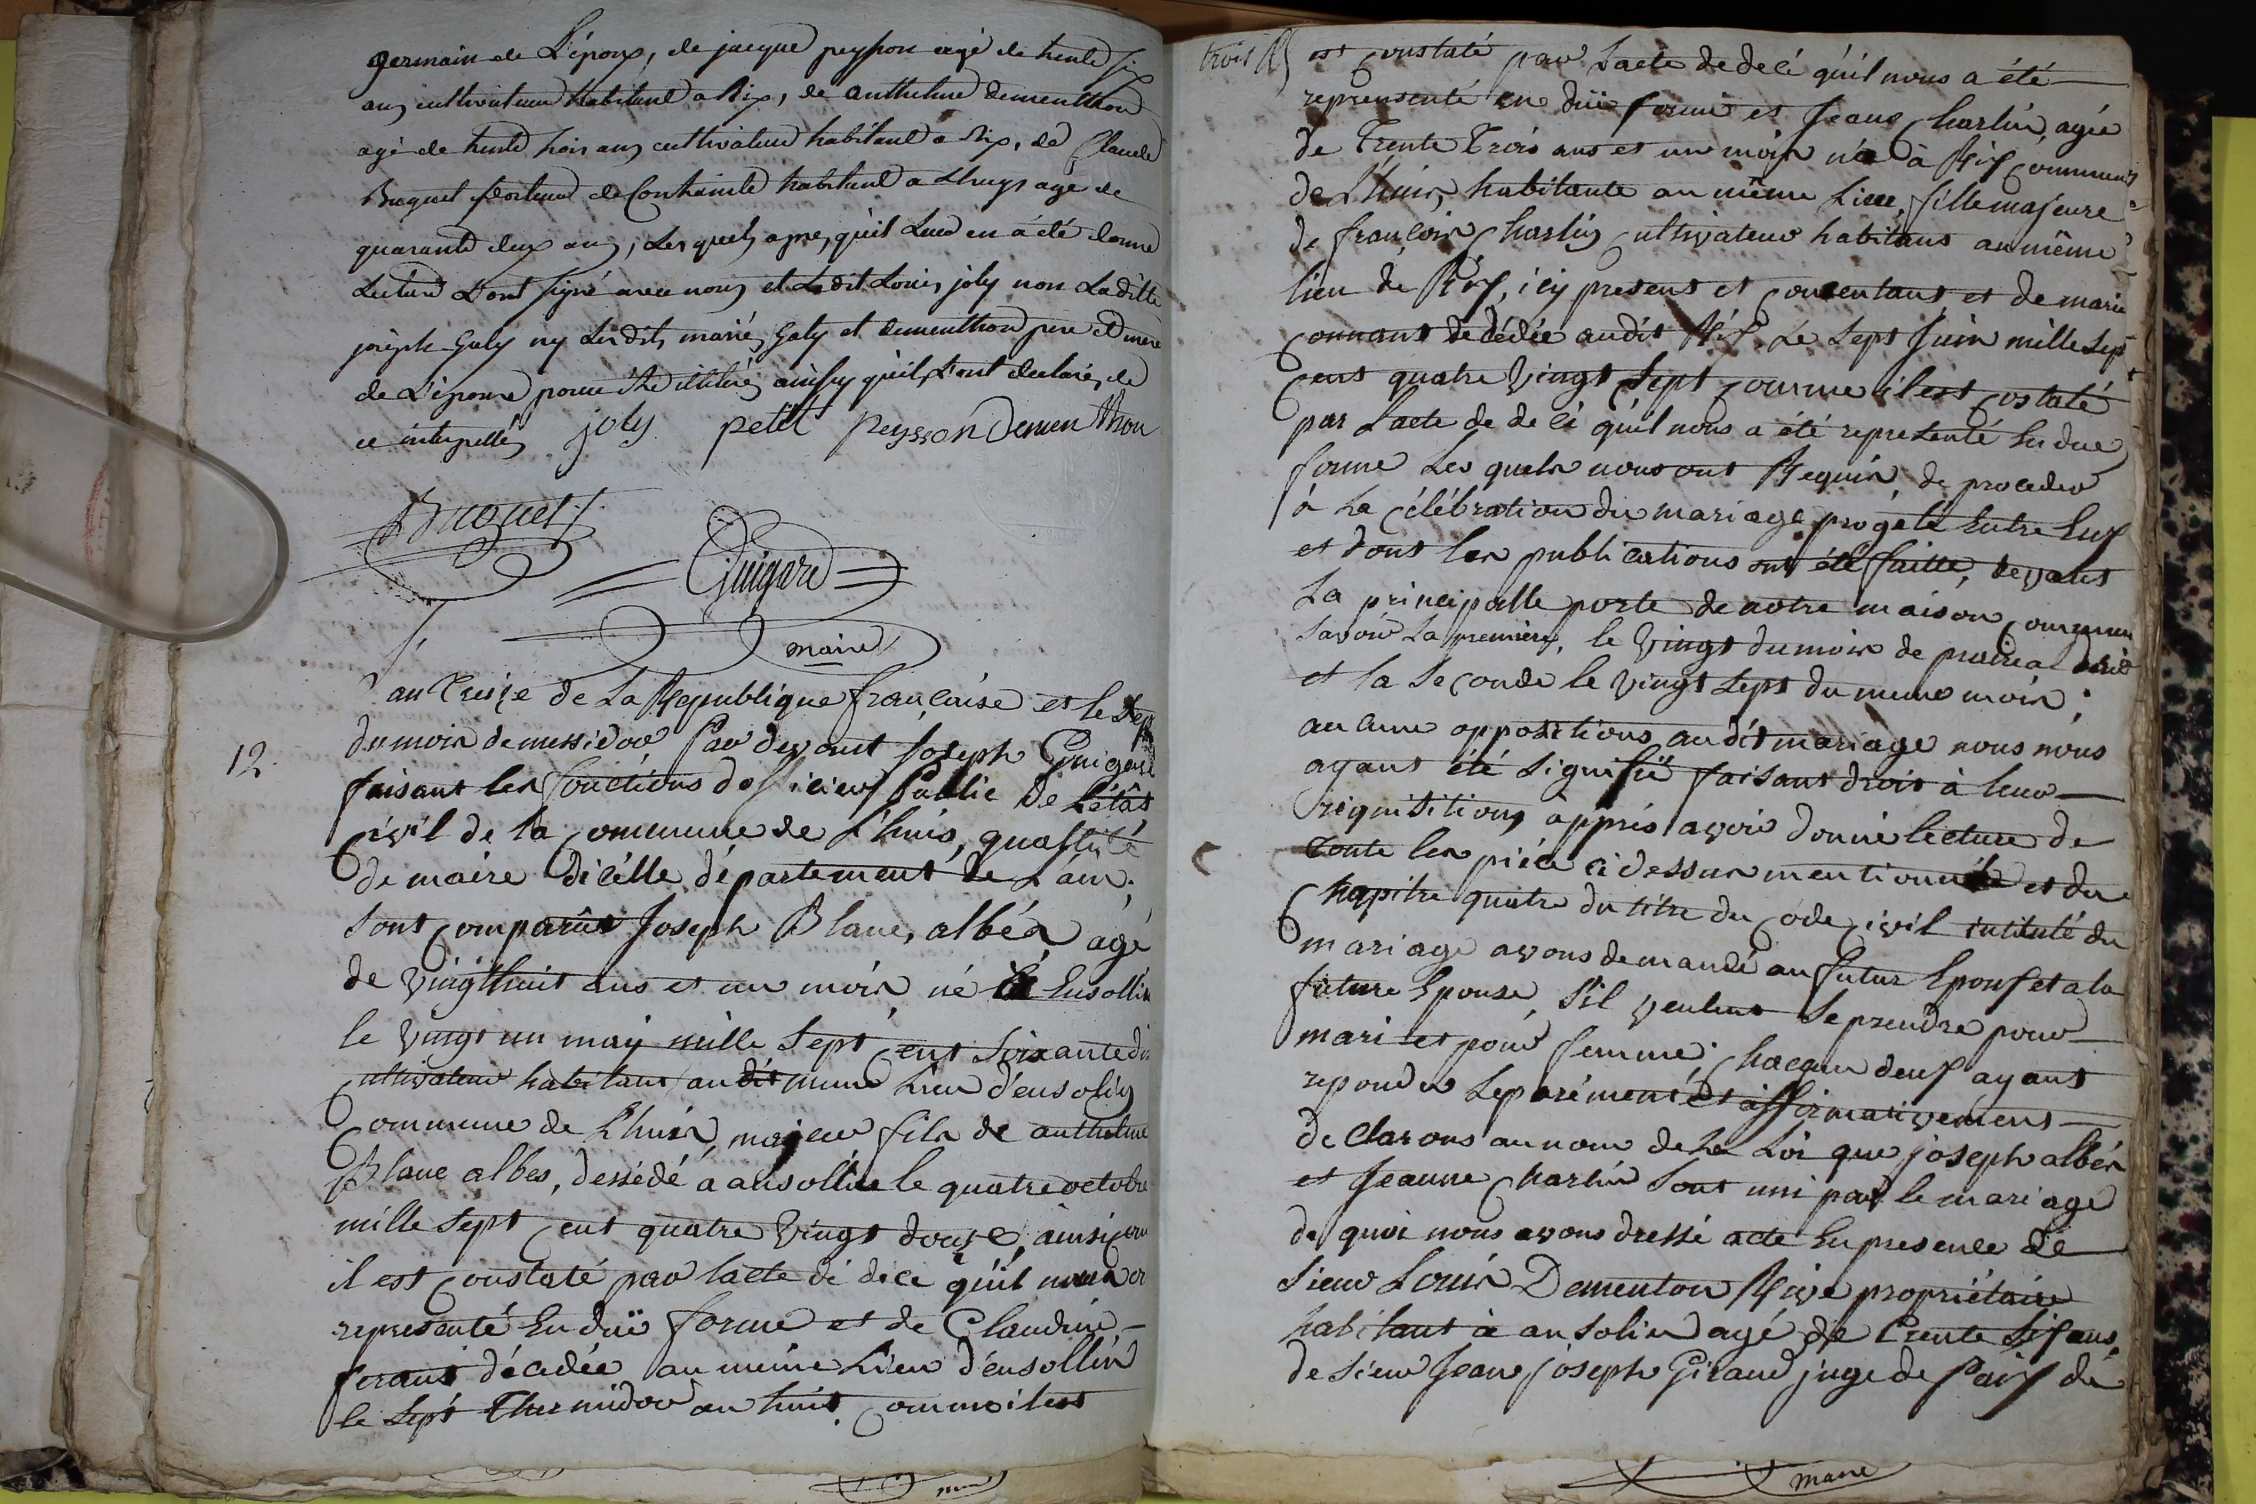 germain de L'époux, de jacque peysson agé de trente six
ans cultivateur habitant a Rix, de anthelme dementhon
agé de trente trois ans cultivateur habitant a Rix, de Claude
Buquet porteur de Contrainte habitant a Lhuys agé de
quarante deux ans, Lesquels apres qu'il Leur en a été donné
Lecture L'ont signé avec nous et Ledit Louis joly non Laditte
joseph Galy ny Lesdits mariés Galy et dementhon pere et mere
de L'épouse pour être illitéré ainsy qu'ils L'ont declarés de
ce interpellés joly petit peysson Dementhon
Buquet
Guigard
maire
12.
L'an Treize de La Republique française et le Sept
du mois de messidor Par devant Joseph Guigard
faisant les fonctions dofficier Public de L'état
Civil de la Commune de L'huis, qualité
de maire dicelle département de L'ain.
Sont Comparut Joseph Blanc, albéa agé
de vingthuit ans et un mois né Ensollin
le vingt un may mille Sept Cent Soixante dix
Cultivateur habitant audit meme Lieu d'ensolin
Commune de L'huis, majeur fils de anthelme
Blanc albes, dessédé a ansollin le quatre octobre
mille Sept Cent quatre vingt douze, ainsi que
il est Constaté par lacte dé déce qu'il nous a
representé En düe forme et de Claudine
ferant décedée au meme Lieu d'ensollin
le Sept Thermidor an huit. Comme il est
trois R
est Constaté par Lacte de decé qu'il nous a été
reprensenté en düe forme et Jeane Charlin, agée
de Trente Trois ans et un mois née à Rix Commune
de L'huis, habitante au même Lieu, fille majeure
de françois Charlin Cultivateur habitant au même
lieu de Rix, icy present et Consentant et de marie
Connant dedédée audit Rix Le Sept Juin mille Sept
Cent quatre vingt Sept Comme il est Costaté
par Lacte de decé qu'il nous a été representé En due
forme Les quels nous ont Requis de proceder
à La Célébration du mariage progeté Entre Eux
et dont les publications ont été faitte, devant
La principalle porte de notre maison Commune
Savoir La premiere, le vingt du mois de prairial
et la Seconde le vingt Sept du meme mois;
aucune oppositions audit mariage nous nous
ayant été Signifiü faisant droit à leur
réquisitions appprés avoir donné lecture de
Toute les piéce ci dessus mentionnée et du
Chapitre quatre du titre du Code Civil intitulé du
mariage avons demandé au futur Epoux et a la
future Epouse, S'il veulent Se prendre pour
mari et pour femme; Chacun deux ayant
repondu Séparément et affirmativement
declarons au nom de La Loi que joseph albéa
et Jeanne Charlin Sont uni par le mariage
de quoi nous avons dressé acte En presence de
Sieur Louis Dementon Rive propriétaire
habitant à ansolin agé de Trente Six ans,
de Sieur Jean joseph Giraud juge de Paix de
maire